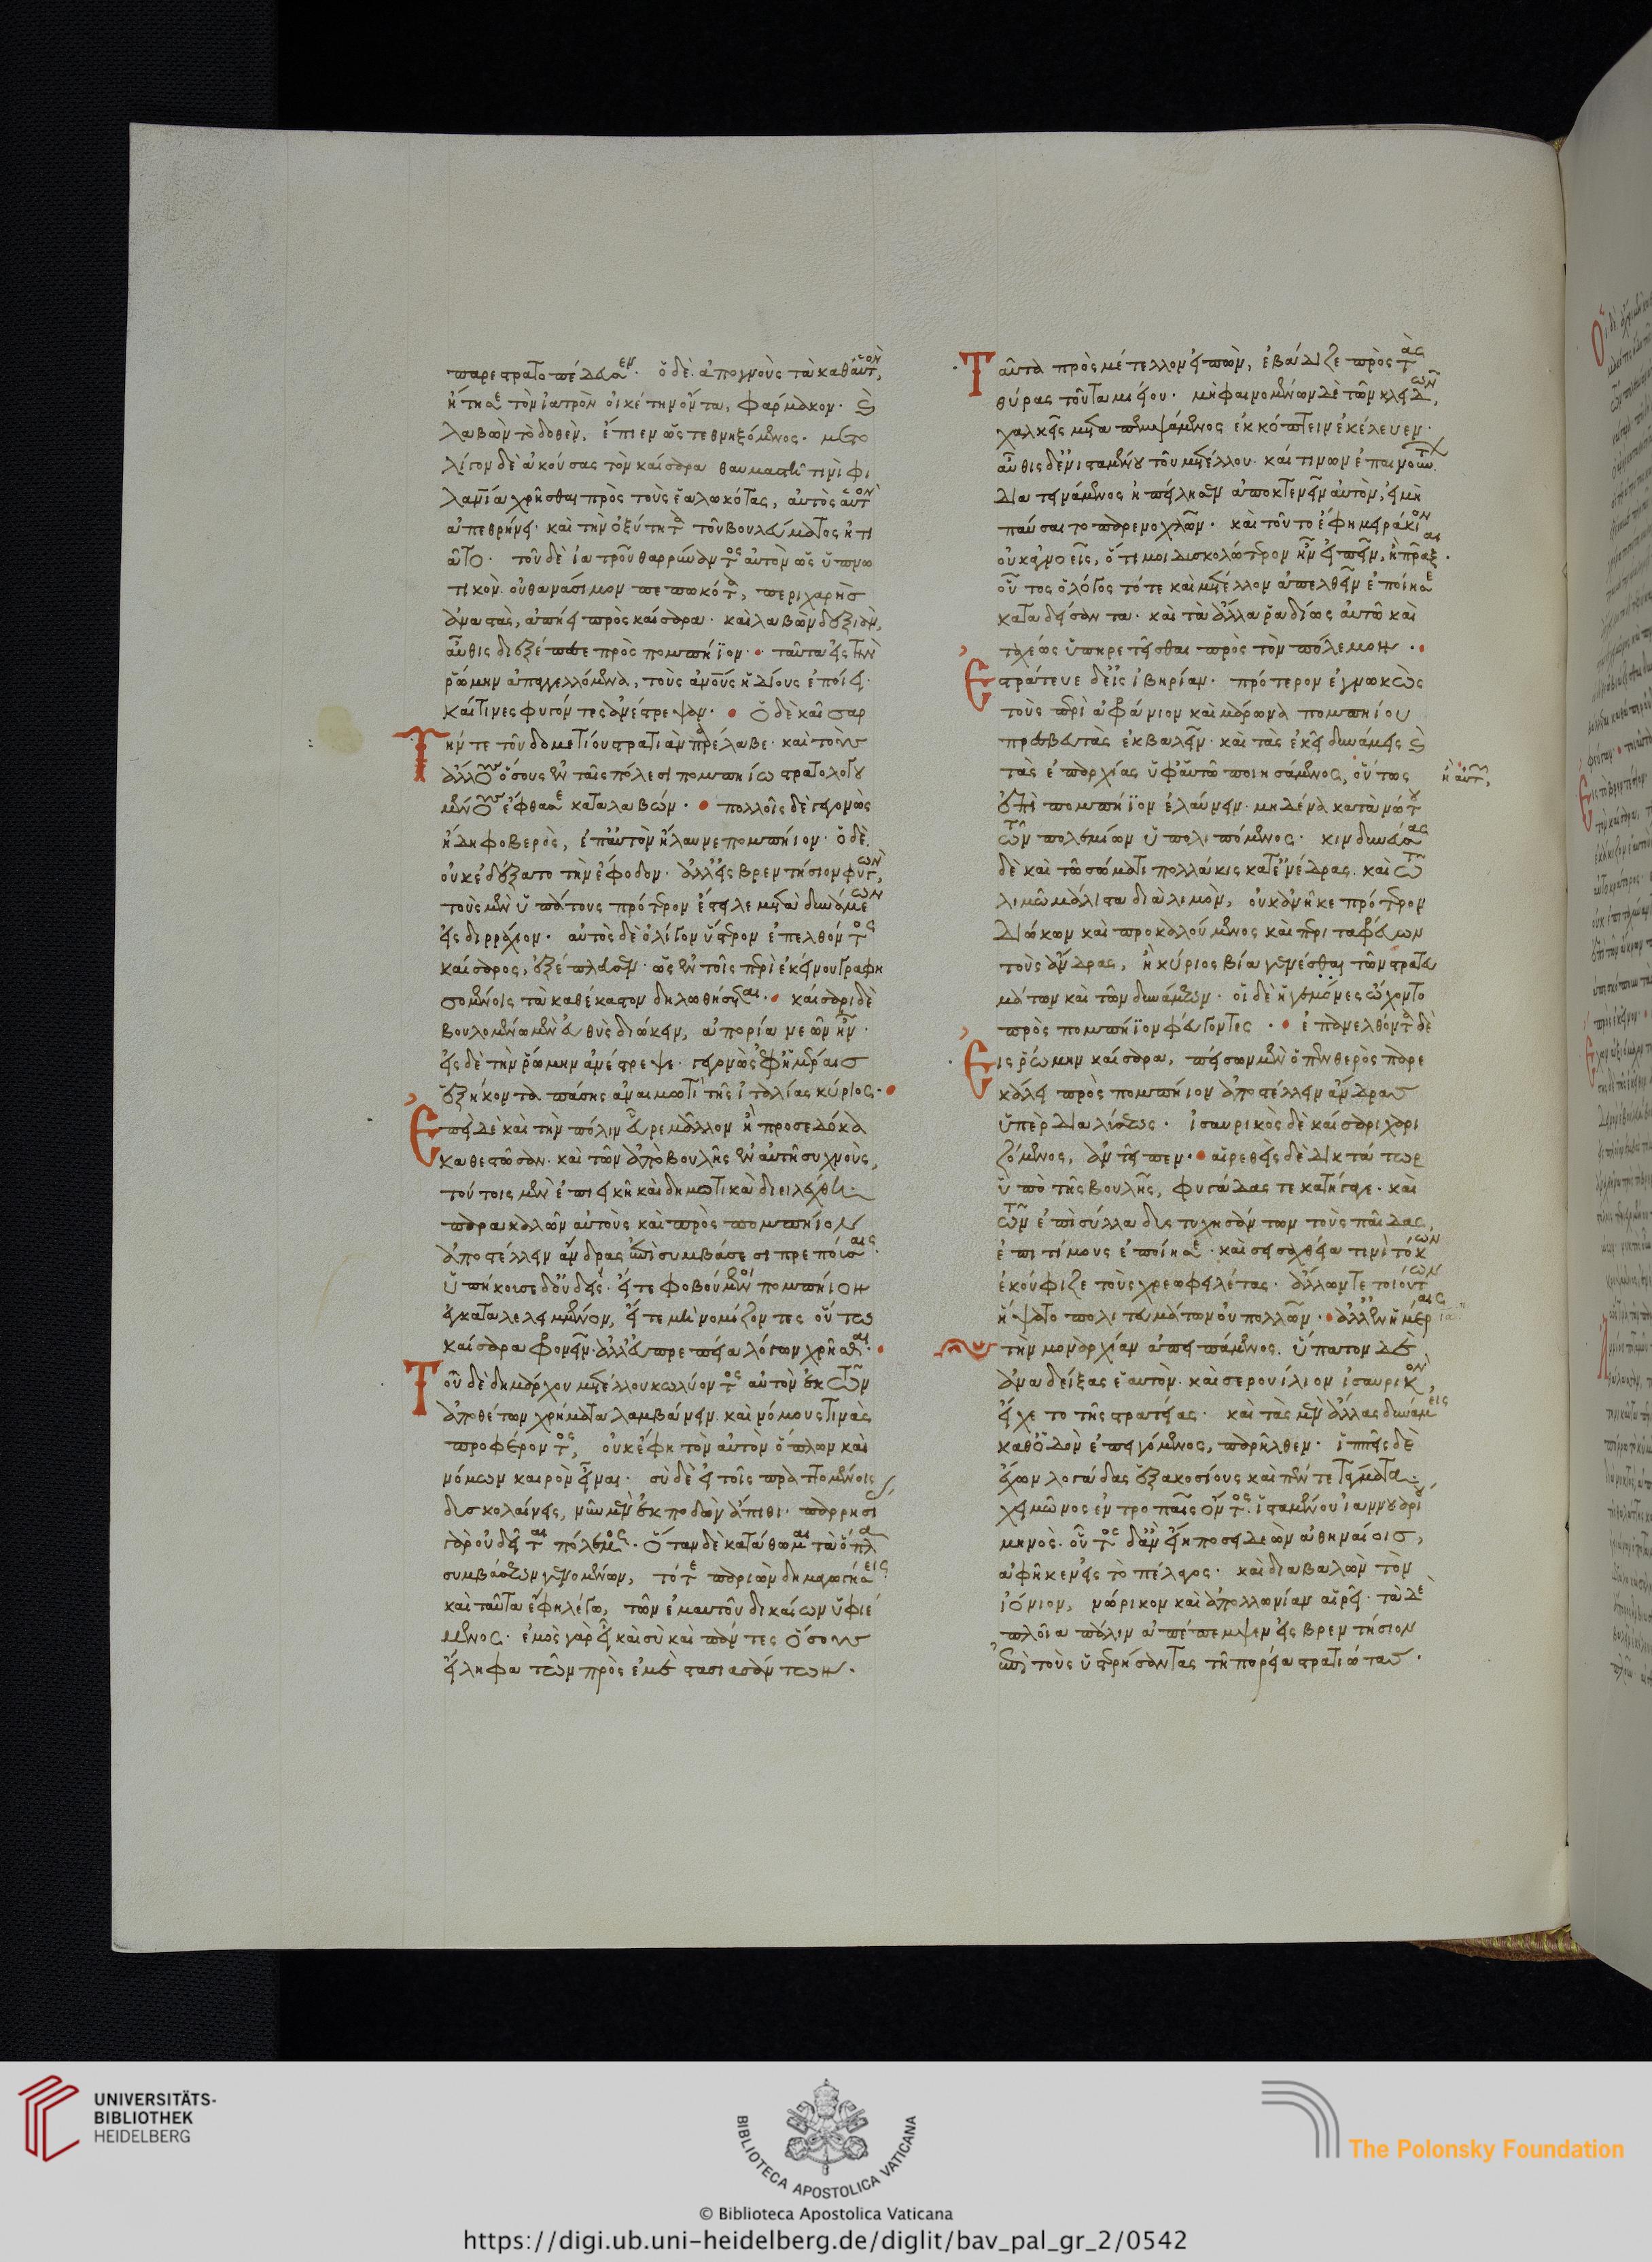 παρεστρατοπέδευεν. ὁ δὲ ἀπογνοὺς τὰ καθ' αὑτὸν,
ᾔτησε τὸν ἰατρὸν οἰκέτην ὄντα, φάρμακον. καὶ
λαβὼν τὸ δοθὲν, ἔπιεν ὡς τεθνηξόμενος. μετ' ὀ
λίγον δὲ ἀκούσας τὸν καίσαρα θαυμαστῆ τινὶ φι
λανθρωπία χρῆσθαι πρὸς τοὺς ἑαλωκότας, αὐτὸς αὑτὸν
ἀπεθρήνει. καὶ τὴν ὀξύτητα τοῦ βουλεύματος ἠτι
ᾶτο. τοῦ δὲ ἰατροῦ θαρρύναντος αὐτὸν ὡς ὑπνω
τικὸν οὐ θανάσιμον πεπωκότα, περιχαρὴς
ἀναστὰς, ἀπήει πρὸς καίσαρα. καὶ λαβὼν δεξιὰν,
αὖθις διεξέπεσε πρὸς πομπήϊον. ταῦτα εἰς τὴν
ῥώμην ἀπαγγελλόμενα, τοὺς ἀνθρώπους ἡδίους ἐποίει.
καί τινες φυγόντες ἀνέστρεψαν. ὁ δὲ καῖσαρ
Τήν τε τοῦ δομετίου στρατιὰν παρέλαβε. καὶ τοὺς
ἄλλους ὅσους ἐν ταῖς πόλεσι πομπηίω στρατολογου
μένους ἔφθασε καταλαβών. πολλοῖς δὲ γεγονὼς
ἤδη φοβερὸς, ἐπ' αὐτὸν ἤλαυνε πομπήιον. ὁ δὲ
οὐκ ἐδέξατο τὴν ἔφοδον. ἀλλ' εἰς βρεντήσιον φυγὼν,
τοὺς μὲν ὑπάτους πρότερον ἔστειλε μετὰ δυνάμεων
εἰς διρράχιον. αὐτὸς δὲ ὀλίγον ὕστερον ἐπελθόντος
καίσαρος, ἐξέπλευσεν. ὡς ἐν τοῖς περὶ ἐκείνου γραφη
σομένοις τὰ καθέκαστον δηλωθήσεται. καίσαρι δὲ
βουλομένω μὲν εὐθὺς διώκειν, ἀπορία νεῶν ἦν.
εἰς δὲ τὴν ῥώμην ἀνέστρεψε. γεγονὼς ἐφ' ἡμέραις
ἑξήκοντα πάσης ἀναιμωτὶ τῆς ἰταλίας κύριος.
Ἐπεὶ δὲ καὶ τὴν πόλιν εὗρε μᾶλλον ἢ προσεδόκα
καθεστῶσαν. καὶ τῶν ἀπὸ βουλῆς ἐν αὐτῆ συχνοὺς,
τούτοις μὲν ἐπιεικῆ καὶ δημοτικὰ διειλέχθη.
παρακαλῶν αὐτοὺς καὶ πρὸς πομπήιον
ἀποστέλλειν ἄνδρας ἐπὶ συμβάσεσι πρεπούσαις.
ὑπήκουσε δ' οὐδείς. εἴτε φοβούμενοι πομπήιον
ἐγκαταλελειμμένον, εἴτε μὴ νομίζοντες οὕτω
καίσαρα φρονεῖν. ἀλλ' εὐπρεπεία λόγων χρῆσθαι.
Τοῦ δὲ δημάρχου μετέλλου κωλύοντος αὐτὸν ἐκ τῶν
ἀποθέτων χρήματα λαμβάνειν. καὶ νόμους τινὰς
προφέροντος, οὐκ ἔφη τὸν αὐτὸν ὅπλων καὶ
νόμων καιρὸν εἶναι. σὺ δὲ εἰ τοῖς πραττομένοις
δυσκολαίνεις, νῦν μὲν ἐκποδὼν ἄπιθι. παρρησί
ας γὰρ οὐ δεῖται πόλεμος. ὅταν δὲ κατάθωμαι τὰ ὅπλα
συμβάσεων γενομένων, τότε παριὼν δημαγωγήσεις.
καὶ ταῦτα ἔφη λέγω, τῶν ἐμαυτοῦ δικαίων ὑφιέ
μενος. ἐμὸς γὰρ εἶ καὶ σὺ καὶ πάντες ὅσους
εἴληφα τῶν πρὸς ἐμὲ στασιασάντων.
Ταῦτα πρὸς μέτελλον εἰπὼν, ἐβάδιζε πρὸς τὰς
θύρας τοῦ ταμιείου. μὴ φαινομένων δὲ τῶν κλειδῶν,
χαλκεῖς μεταπεμψάμενος ἐκκόπτειν ἐκέλευεν.
αὖθις δ' ἐνισταμένου τοῦ μετέλλου. καί τινων ἐπαινούντων.
διατεινάμενος ἠπείλησεν ἀποκτενεῖν αὐτὸν, εἰ μὴ
παύσαιτο παρενοχλῶν. καὶ τοῦτο ἔφη μειράκιον
οὐκ ἀγνοεῖς, ὅτι μοι δυσκολώτερον ἦν εἰπεῖν, ἢ πρᾶξαι.
οὗτος ὁ λόγος τότε καὶ μέτελλον ἀπελθεῖν ἐποίησε
καταδείσαντα. καὶ τὰ ἄλλα ῥαδίως αὐτῶ καὶ
ταχέως ὑπηρετεῖσθαι πρὸς τὸν πόλεμον.
Ἐστράτευσε δ' εἰς ἰβηρίαν. πρότερον ἐγνωκὼς
τοὺς περὶ ἀφράνιον καὶ βάρωνα πομπηίου
πρεσβευτὰς ἐκβαλεῖν. καὶ τὰς ἐκεῖ δυνάμεις καὶ
τὰς ἐπαρχίας ὑφ' αὑτῶ ποιησάμενος, οὕτως
ἐπὶ πομπήϊον ἐλαύνειν. μηδένα κατὰ νώτου
τῶν πολεμίων ὑπολιπόμενος. κινδυνεύσας
δὲ καὶ τῶ σώματι πολλάκις κατ' ἐνέδρας. καὶ τῶ
λιμῶ μάλιστα διὰ λιμὸν, οὐκ ἀνῆκε πρότερον
διώκων καὶ προκαλούμενος καὶ περιταφρεύων
τοὺς ἄνδρας, ἢ κύριος βία γενέσθαι τῶν στρατευ
μάτων καὶ τῶν δυνάμεων. οἱ δὲ ἡγεμόνες ὤχοντο
πρὸς πομπήϊον φεύγοντες. ἐπανελθόντα δὲ
Εἰς ῥώμην καίσαρα, πείσων μὲν ὁ πενθερὸς παρε
κάλει πρὸς πομπήιον ἀποστέλλειν ἄνδρας
ὑπὲρ διαλύσεως. ἰσαυρικὸς δὲ καίσαρι χαρι
ζόμενος, ἀντεῖπεν. αἱρεθεὶς δὲ δικτάτωρ
ὑπὸ τῆς βουλῆς, φυγάδας τε κατήγαγε. καὶ
τῶν ἐπὶ σύλλα δυστυχησάντων τοὺς παῖδας,
ἐπιτίμους ἐποίησε. καὶ σεισαχθεία τινὶ τόκων
ἐκούφιζε τοὺς χρεωφειλέτας. ἄλλων τε τοιούτων
ἥψατο πολιτευμάτων οὐ πολλῶν. ἀλλ' ἐν ἡμέραις
τὴν μοναρχίαν ἀπειπάμενος. ὕπατον δὲ
ἀναδείξας ἑαυτὸν. καὶ σερουίλιον ἰσαυρικὸν,
εἴχετο τῆς στρατείας. καὶ τὰς μὲν ἄλλας δυνάμεις
καθ' ὁδὸν ἐπειγόμενος, παρῆλθεν. ἱππεῖς δὲ
ἔχων λογάδας ἑξακοσίους καὶ πέντε τάγματα.
χειμῶνος ἐν τροπαῖς ὄντος. ἱσταμένου ἰαννουαρίου
μηνός. οὗτος δ' ἂν εἴη ποσειδεὼν ἀθηναίοις,
ἀφῆκεν εἰς τὸ πέλαγος. καὶ διαβαλὼν τὸν
ἰόνιον, ὤρικον καὶ ἀπολλωνίαν αἱρεῖ. τὰ δὲ
πλοῖα πάλιν ἀπέπεμψεν εἰς βρεντήσιον
ἐπὶ τοὺς ὑστερήσαντας τῆ πορεία στρατιώτας.
UNIVERSITÄTS-
BIBLIOTHEK
HEIDELBERG
BIBLIOTECA APOSTOLICA VATICANA
The Polonsky Foundation
© Biblioteca Apostolica Vaticana
https://digi.ub.uni-heidelberg.de/diglit/bav_pal_gr_2/0542